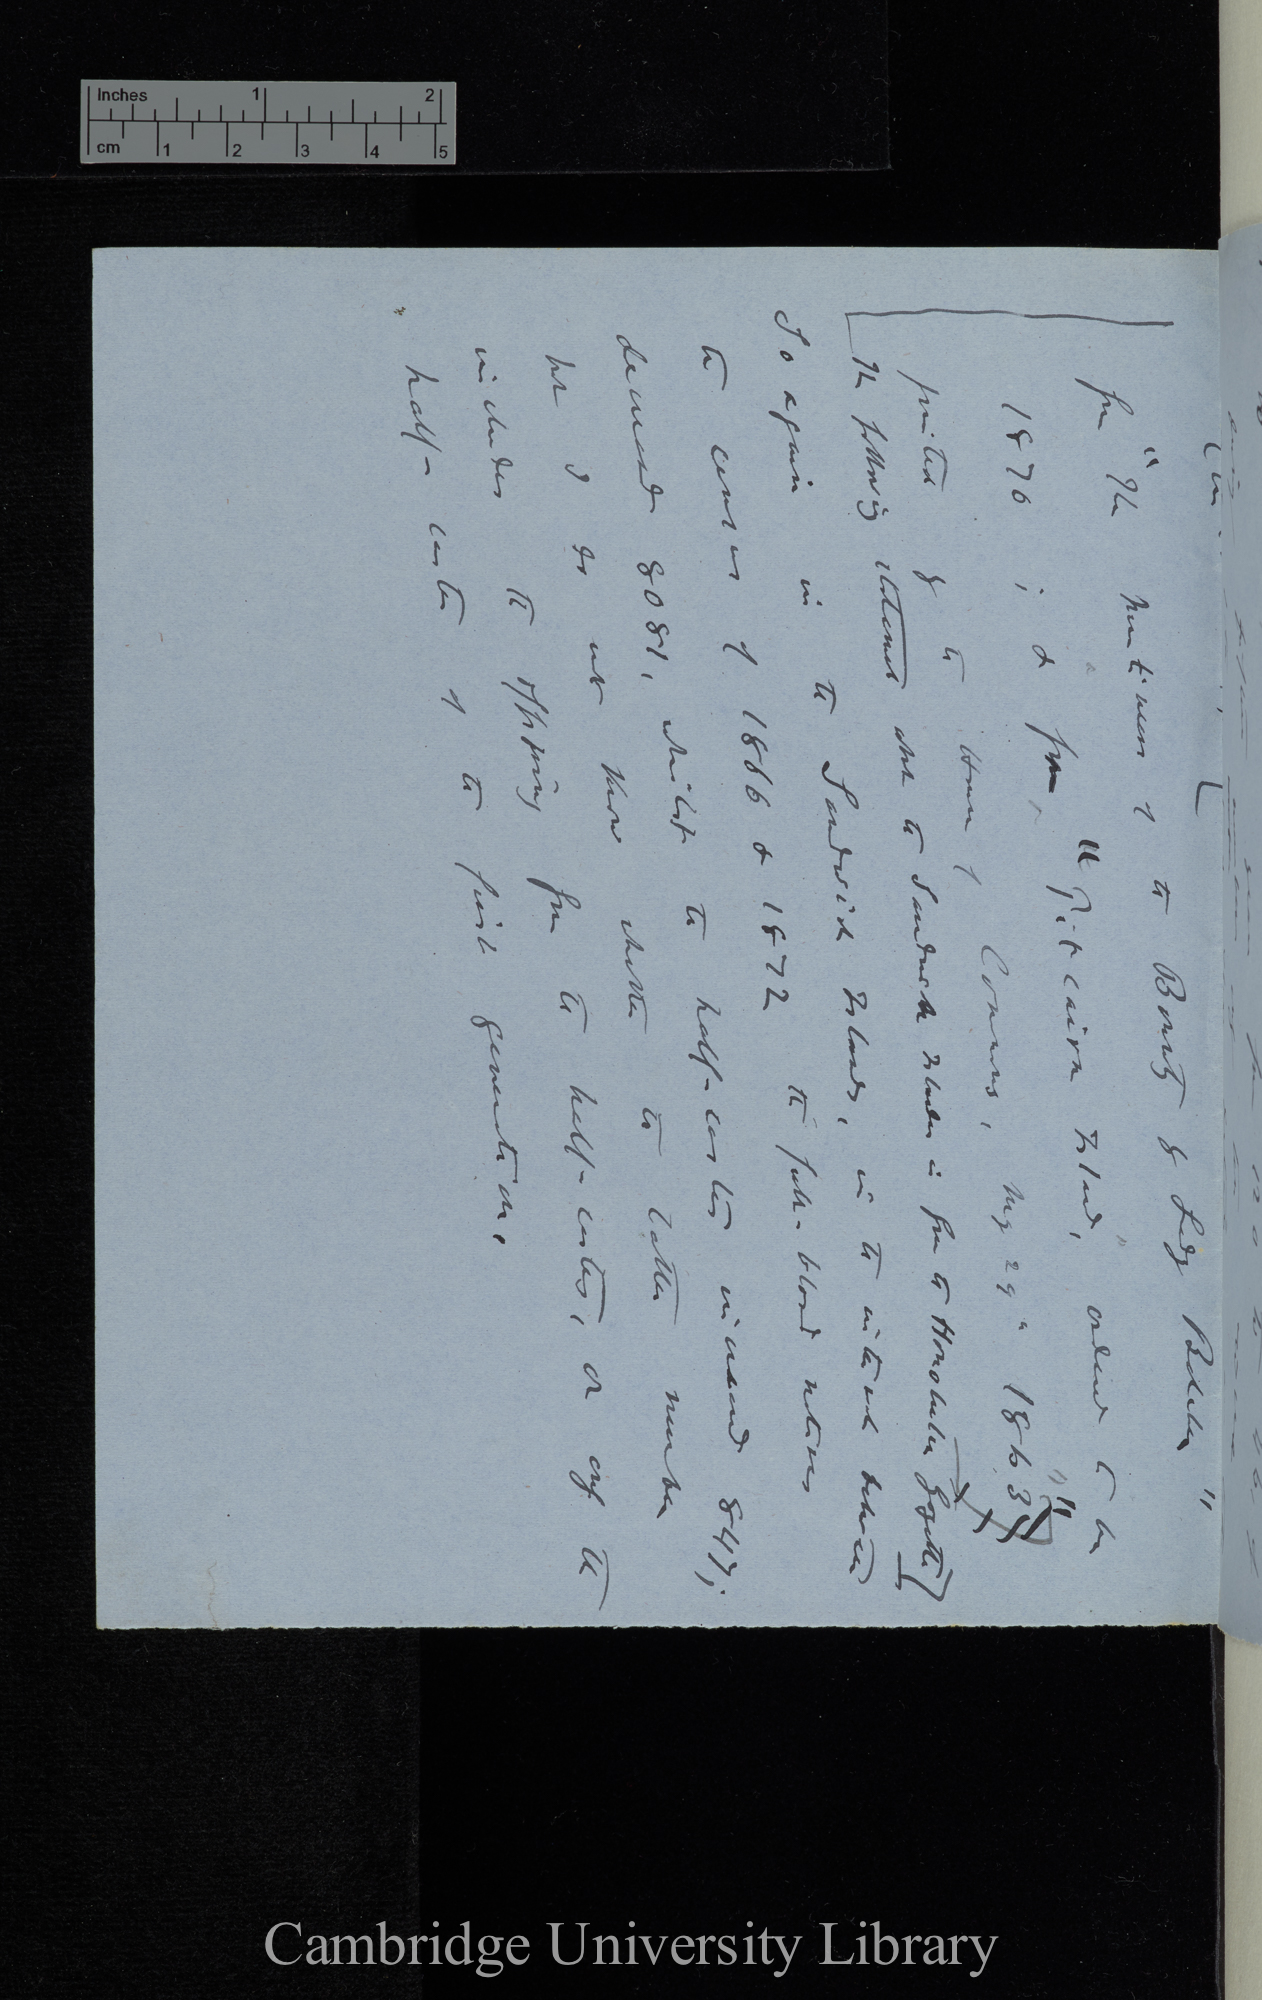 Inches 1 2
cm 1 2 3 4 5
from "The Mutineers of the Bounty by Lady Belcher"
1870; & from "Pitcairn Island," ordered to be
printed by the House of Commons, May 29th 1863"
The following statement about the Sandwich Islanders is from the Honolulu Gazette]
So again in the Sandwich Islands, in the interval between
the census of 1866 & 1872 the full-blood natives
decreased 8081, whilst the half-castes increased 847;
but I do not know whether the latter number
includes the offspring from the half-castes, or only the
half-castes of the first generation.
Cambridge University Library